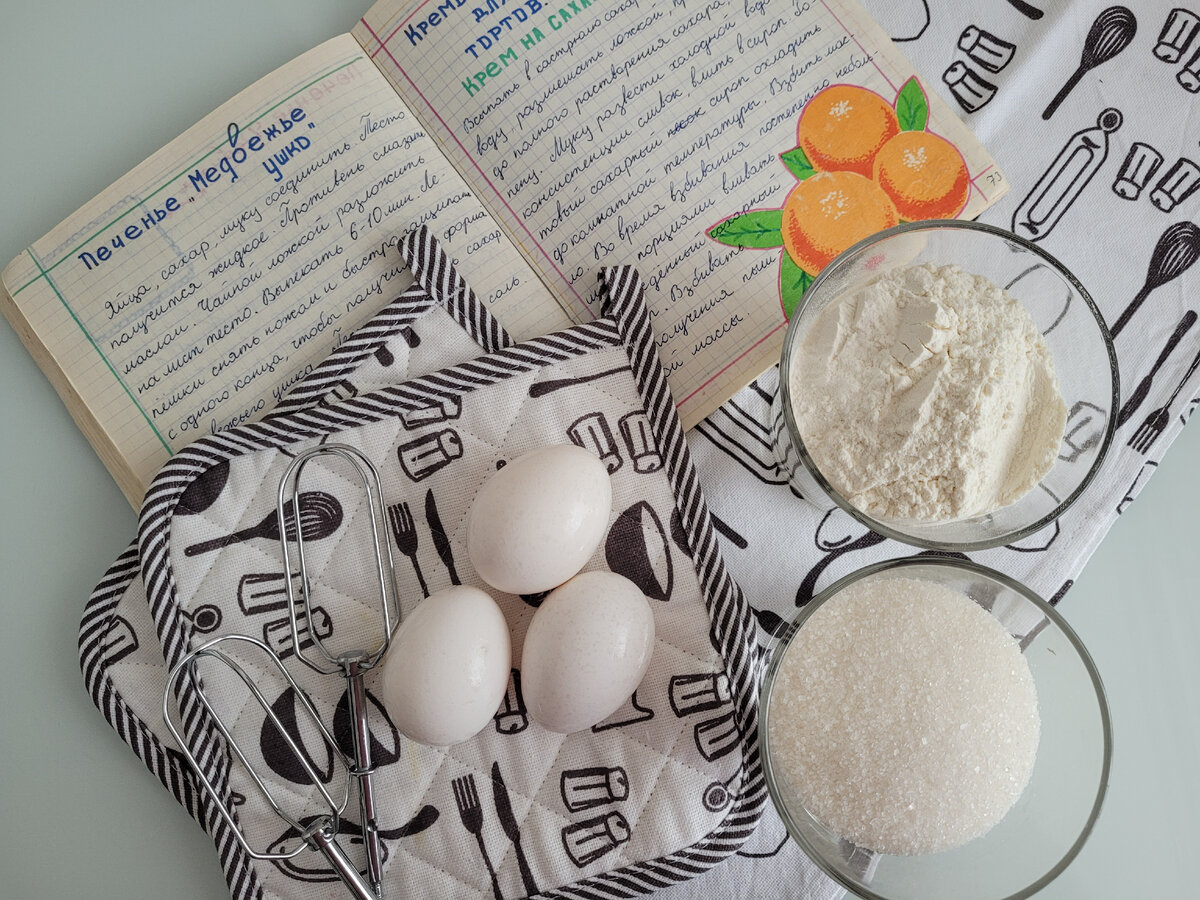 Печенье „Медвежье
ушко"
Яйца, сахар, муку соединить. Тесто
получится жидкое. Противень смазать
маслом. Чайной ложкой разложить
на лист тесто. Выпекать 6-10 мин. Ле-
пёшки снять ножом и быстро защипнуть
с одного конца, чтобы получилась форма
вежьего ушка.
сахар
соль.
Кремы
для
тортов.
Крем на саха
Всыпать в кастрюлю сахар
воду, размешать ложкой,
до полного растворения сахара,
пену. Муку развести холодной водой
консистенции сливок, влить в сироп. Го-
товый сахарный сироп охладить
до комнатной температуры. Взбить мас-
ло. Во время взбивания постепенно неболь-
порциями вливать
денный сахарный
Взбивать
получения пыш
ой массы.
73